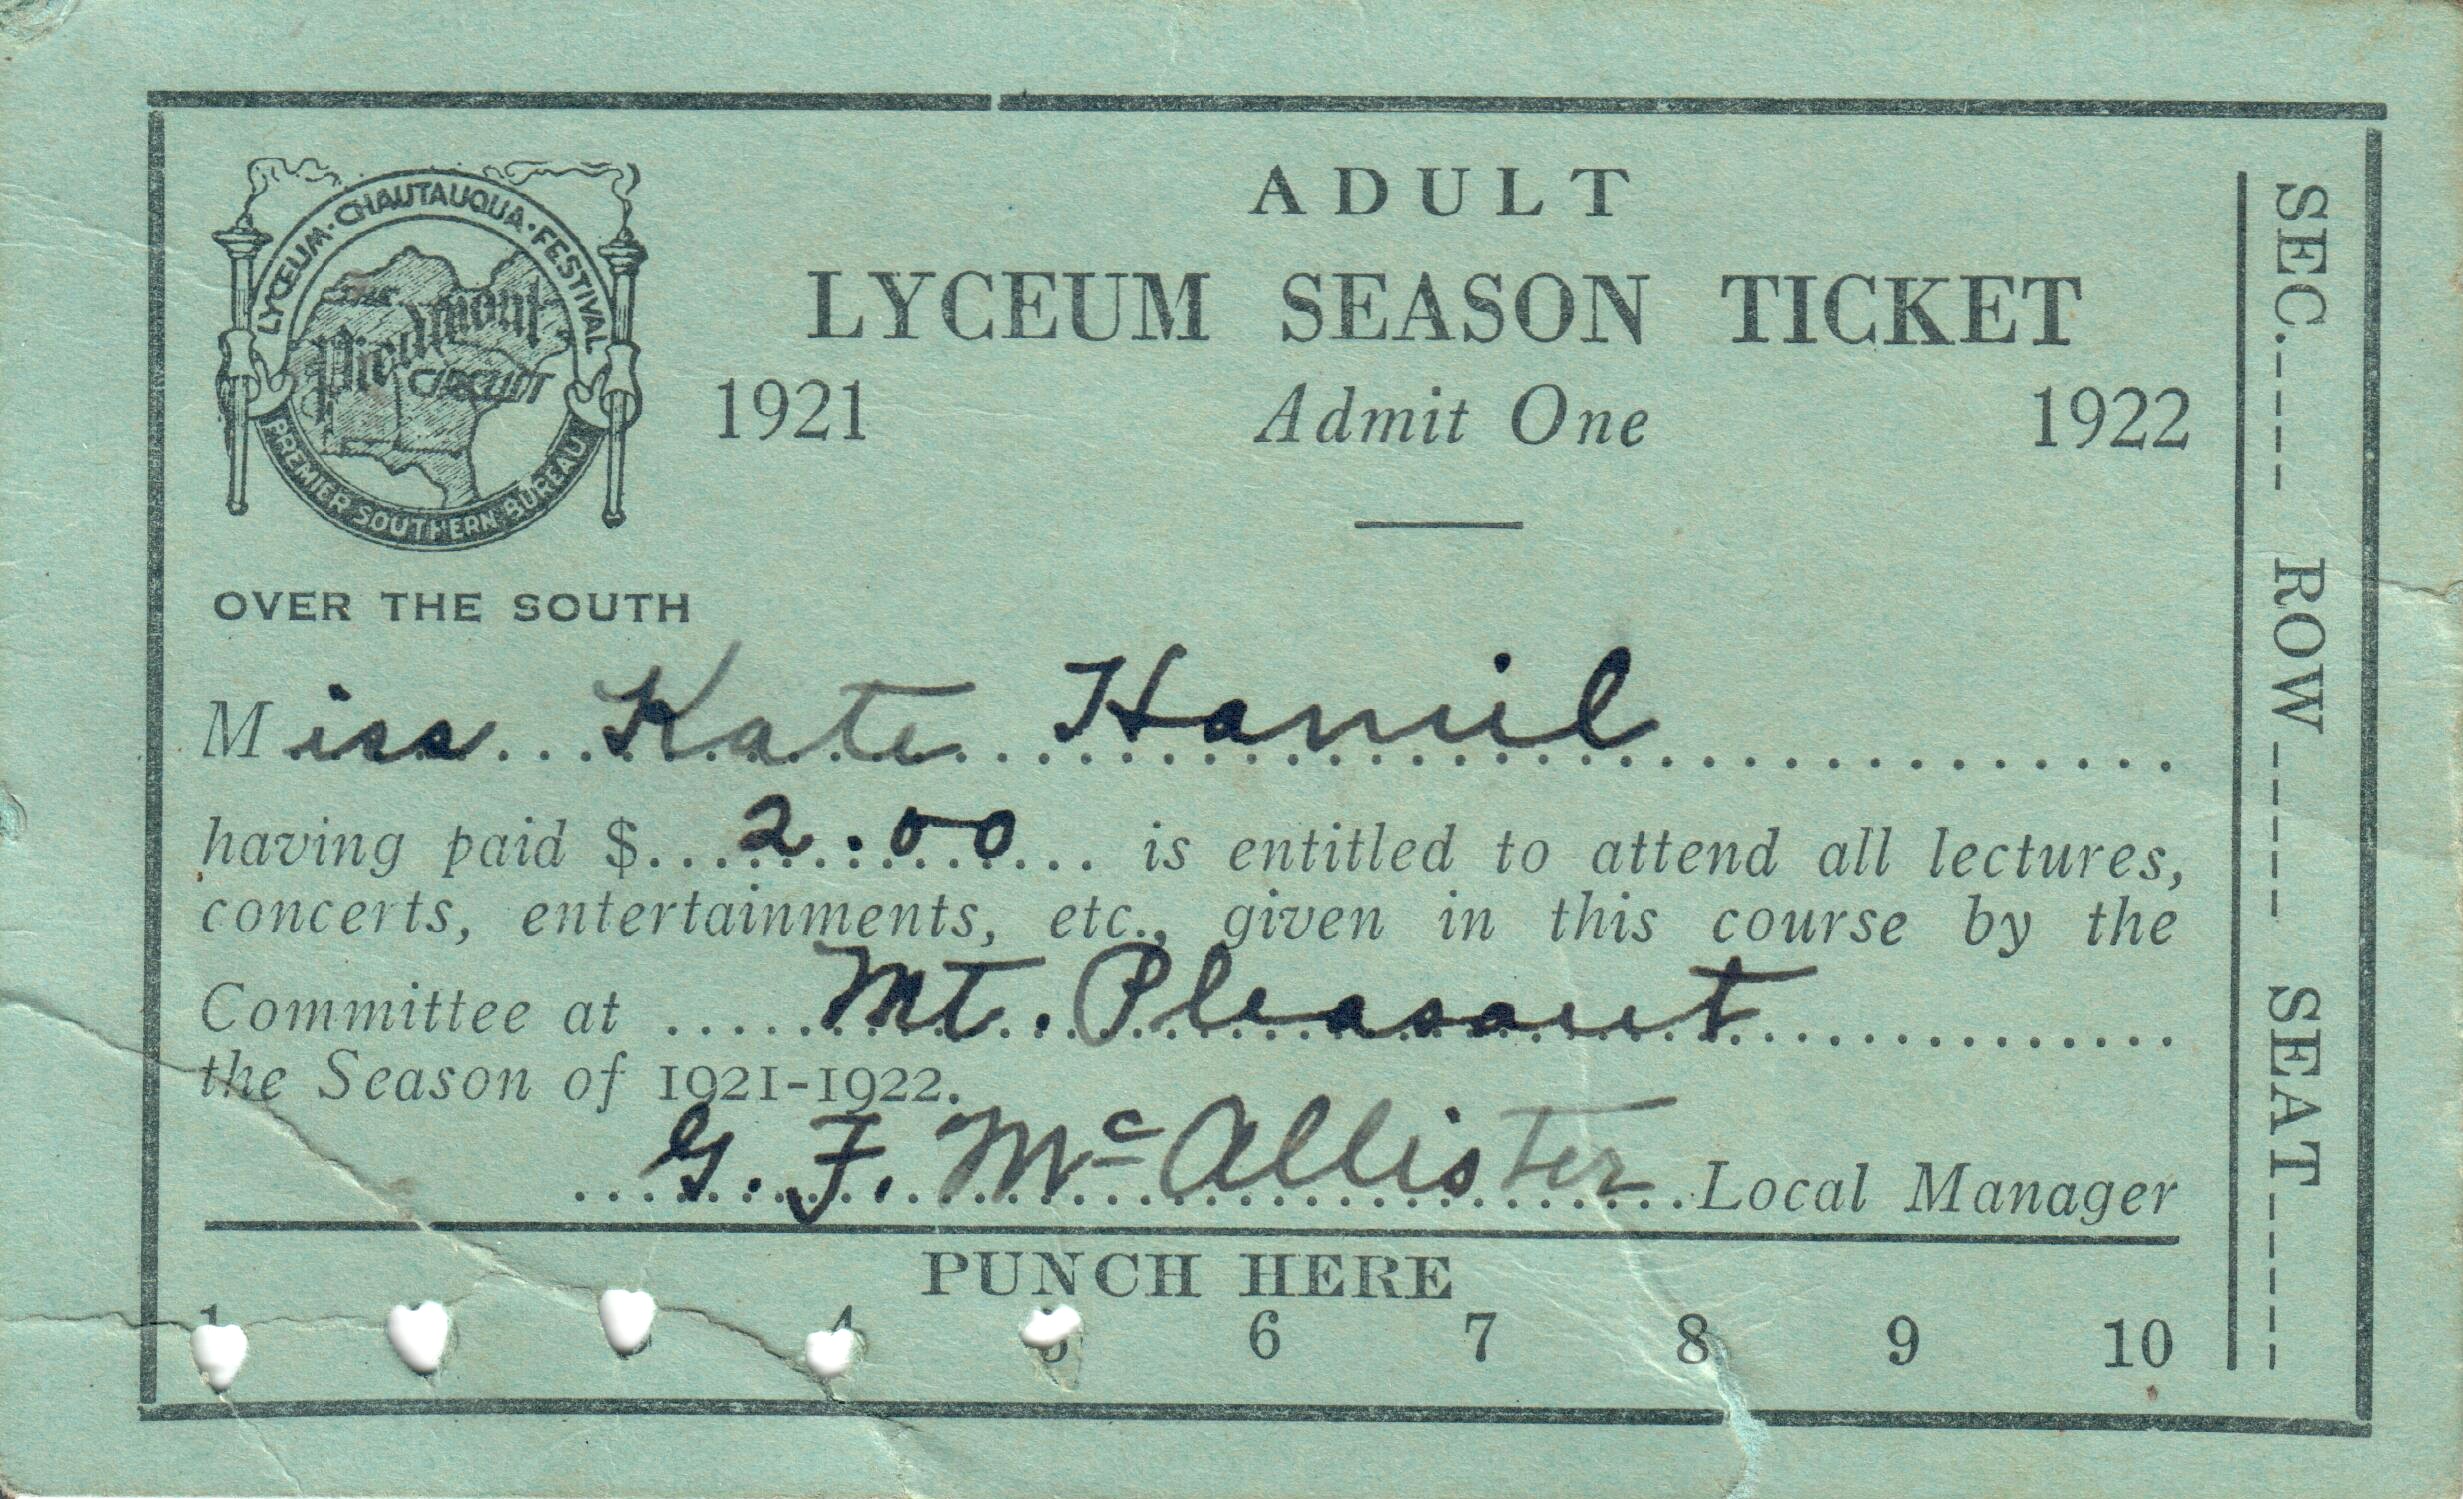 ADULT
LYCEUM SEASON TICKET
1921 Admit One 1922
LYCEUM · CHAUTAUQUA · FESTIVAL
Piedmont
CIRCUIT
PREMIER SOUTHERN BUREAU
OVER THE SOUTH
Miss Kate Hamil
having paid $ 2.00 is entitled to attend all lectures,
concerts, entertainments, etc., given in this course by the
Committee at Mt. Pleasant
the Season of 1921-1922.
G. F. McAllister Local Manager
PUNCH HERE
1 4 5 6 7 8 9 10
SEC. ROW SEAT